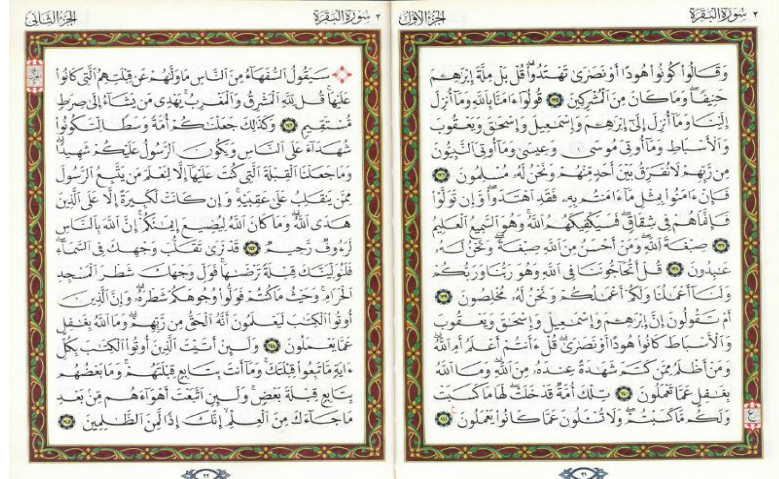 ٢ سورة البقرة
الجزء الأول
وَقَالُوا كُونُوا هُودًا أَوْ نَصَٰرَىٰ تَهْتَدُوا قُلْ بَلْ مِلَّةَ إِبْرَٰهِيمَ
حَنِيفًا وَمَا كَانَ مِنَ الْمُشْرِكِينَ ١٣٥ قُولُوا ءَامَنَّا بِاللَّهِ وَمَا أُنزِلَ
إِلَيْنَا وَمَا أُنزِلَ إِلَىٰ إِبْرَٰهِيمَ وَإِسْمَٰعِيلَ وَإِسْحَٰقَ وَيَعْقُوبَ
وَالْأَسْبَاطِ وَمَا أُوتِيَ مُوسَىٰ وَعِيسَىٰ وَمَا أُوتِيَ النَّبِيُّونَ
مِن رَّبِّهِمْ لَا نُفَرِّقُ بَيْنَ أَحَدٍ مِّنْهُمْ وَنَحْنُ لَهُ مُسْلِمُونَ ١٣٦
فَإِنْ ءَامَنُوا بِمِثْلِ مَا ءَامَنتُم بِهِ فَقَدِ اهْتَدَوا وَّإِن تَوَلَّوْا
فَإِنَّمَا هُمْ فِي شِقَاقٍ فَسَيَكْفِيكَهُمُ اللَّهُ وَهُوَ السَّمِيعُ الْعَلِيمُ
١٣٧ صِبْغَةَ اللَّهِ وَمَنْ أَحْسَنُ مِنَ اللَّهِ صِبْغَةً وَنَحْنُ لَهُ
عَٰبِدُونَ ١٣٨ قُلْ أَتُحَاجُّونَنَا فِي اللَّهِ وَهُوَ رَبُّنَا وَرَبُّكُمْ
وَلَنَا أَعْمَٰلُنَا وَلَكُمْ أَعْمَٰلُكُمْ وَنَحْنُ لَهُ مُخْلِصُونَ ١٣٩
أَمْ تَقُولُونَ إِنَّ إِبْرَٰهِيمَ وَإِسْمَٰعِيلَ وَإِسْحَٰقَ وَيَعْقُوبَ
وَالْأَسْبَاطَ كَانُوا هُودًا أَوْ نَصَٰرَىٰ قُلْ ءَأَنتُمْ أَعْلَمُ أَمِ اللَّهُ
وَمَنْ أَظْلَمُ مِمَّن كَتَمَ شَهَٰدَةً عِندَهُ مِنَ اللَّهِ وَمَا اللَّهُ
بِغَٰفِلٍ عَمَّا تَعْمَلُونَ ١٤٠ تِلْكَ أُمَّةٌ قَدْ خَلَتْ لَهَا مَا كَسَبَتْ
وَلَكُم مَّا كَسَبْتُمْ وَلَا تُسْـَٔلُونَ عَمَّا كَانُوا يَعْمَلُونَ ١٤١
٢١
٢ سورة البقرة
الجزء الثاني
سَيَقُولُ السُّفَهَاءُ مِنَ النَّاسِ مَا وَلَّىٰهُمْ عَن قِبْلَتِهِمُ الَّتِي كَانُوا
عَلَيْهَا قُل لِّلَّهِ الْمَشْرِقُ وَالْمَغْرِبُ يَهْدِي مَن يَشَاءُ إِلَىٰ صِرَٰطٍ
مُّسْتَقِيمٍ ١٤٢ وَكَذَٰلِكَ جَعَلْنَٰكُمْ أُمَّةً وَسَطًا لِّتَكُونُوا
شُهَدَاءَ عَلَى النَّاسِ وَيَكُونَ الرَّسُولُ عَلَيْكُمْ شَهِيدًا
وَمَا جَعَلْنَا الْقِبْلَةَ الَّتِي كُنتَ عَلَيْهَا إِلَّا لِنَعْلَمَ مَن يَتَّبِعُ الرَّسُولَ
مِمَّن يَنقَلِبُ عَلَىٰ عَقِبَيْهِ وَإِن كَانَتْ لَكَبِيرَةً إِلَّا عَلَى الَّذِينَ
هَدَى اللَّهُ وَمَا كَانَ اللَّهُ لِيُضِيعَ إِيمَٰنَكُمْ إِنَّ اللَّهَ بِالنَّاسِ
لَرَءُوفٌ رَّحِيمٌ ١٤٣ قَدْ نَرَىٰ تَقَلُّبَ وَجْهِكَ فِي السَّمَاءِ
فَلَنُوَلِّيَنَّكَ قِبْلَةً تَرْضَىٰهَا فَوَلِّ وَجْهَكَ شَطْرَ الْمَسْجِدِ
الْحَرَامِ وَحَيْثُ مَا كُنتُمْ فَوَلُّوا وُجُوهَكُمْ شَطْرَهُ وَإِنَّ الَّذِينَ
أُوتُوا الْكِتَٰبَ لَيَعْلَمُونَ أَنَّهُ الْحَقُّ مِن رَّبِّهِمْ وَمَا اللَّهُ بِغَٰفِلٍ
عَمَّا يَعْمَلُونَ ١٤٤ وَلَئِنْ أَتَيْتَ الَّذِينَ أُوتُوا الْكِتَٰبَ بِكُلِّ
ءَايَةٍ مَّا تَبِعُوا قِبْلَتَكَ وَمَا أَنتَ بِتَابِعٍ قِبْلَتَهُمْ وَمَا بَعْضُهُم
بِتَابِعٍ قِبْلَةَ بَعْضٍ وَلَئِنِ اتَّبَعْتَ أَهْوَاءَهُم مِّن بَعْدِ
مَا جَاءَكَ مِنَ الْعِلْمِ إِنَّكَ إِذًا لَّمِنَ الظَّٰلِمِينَ ١٤٥
٢٢